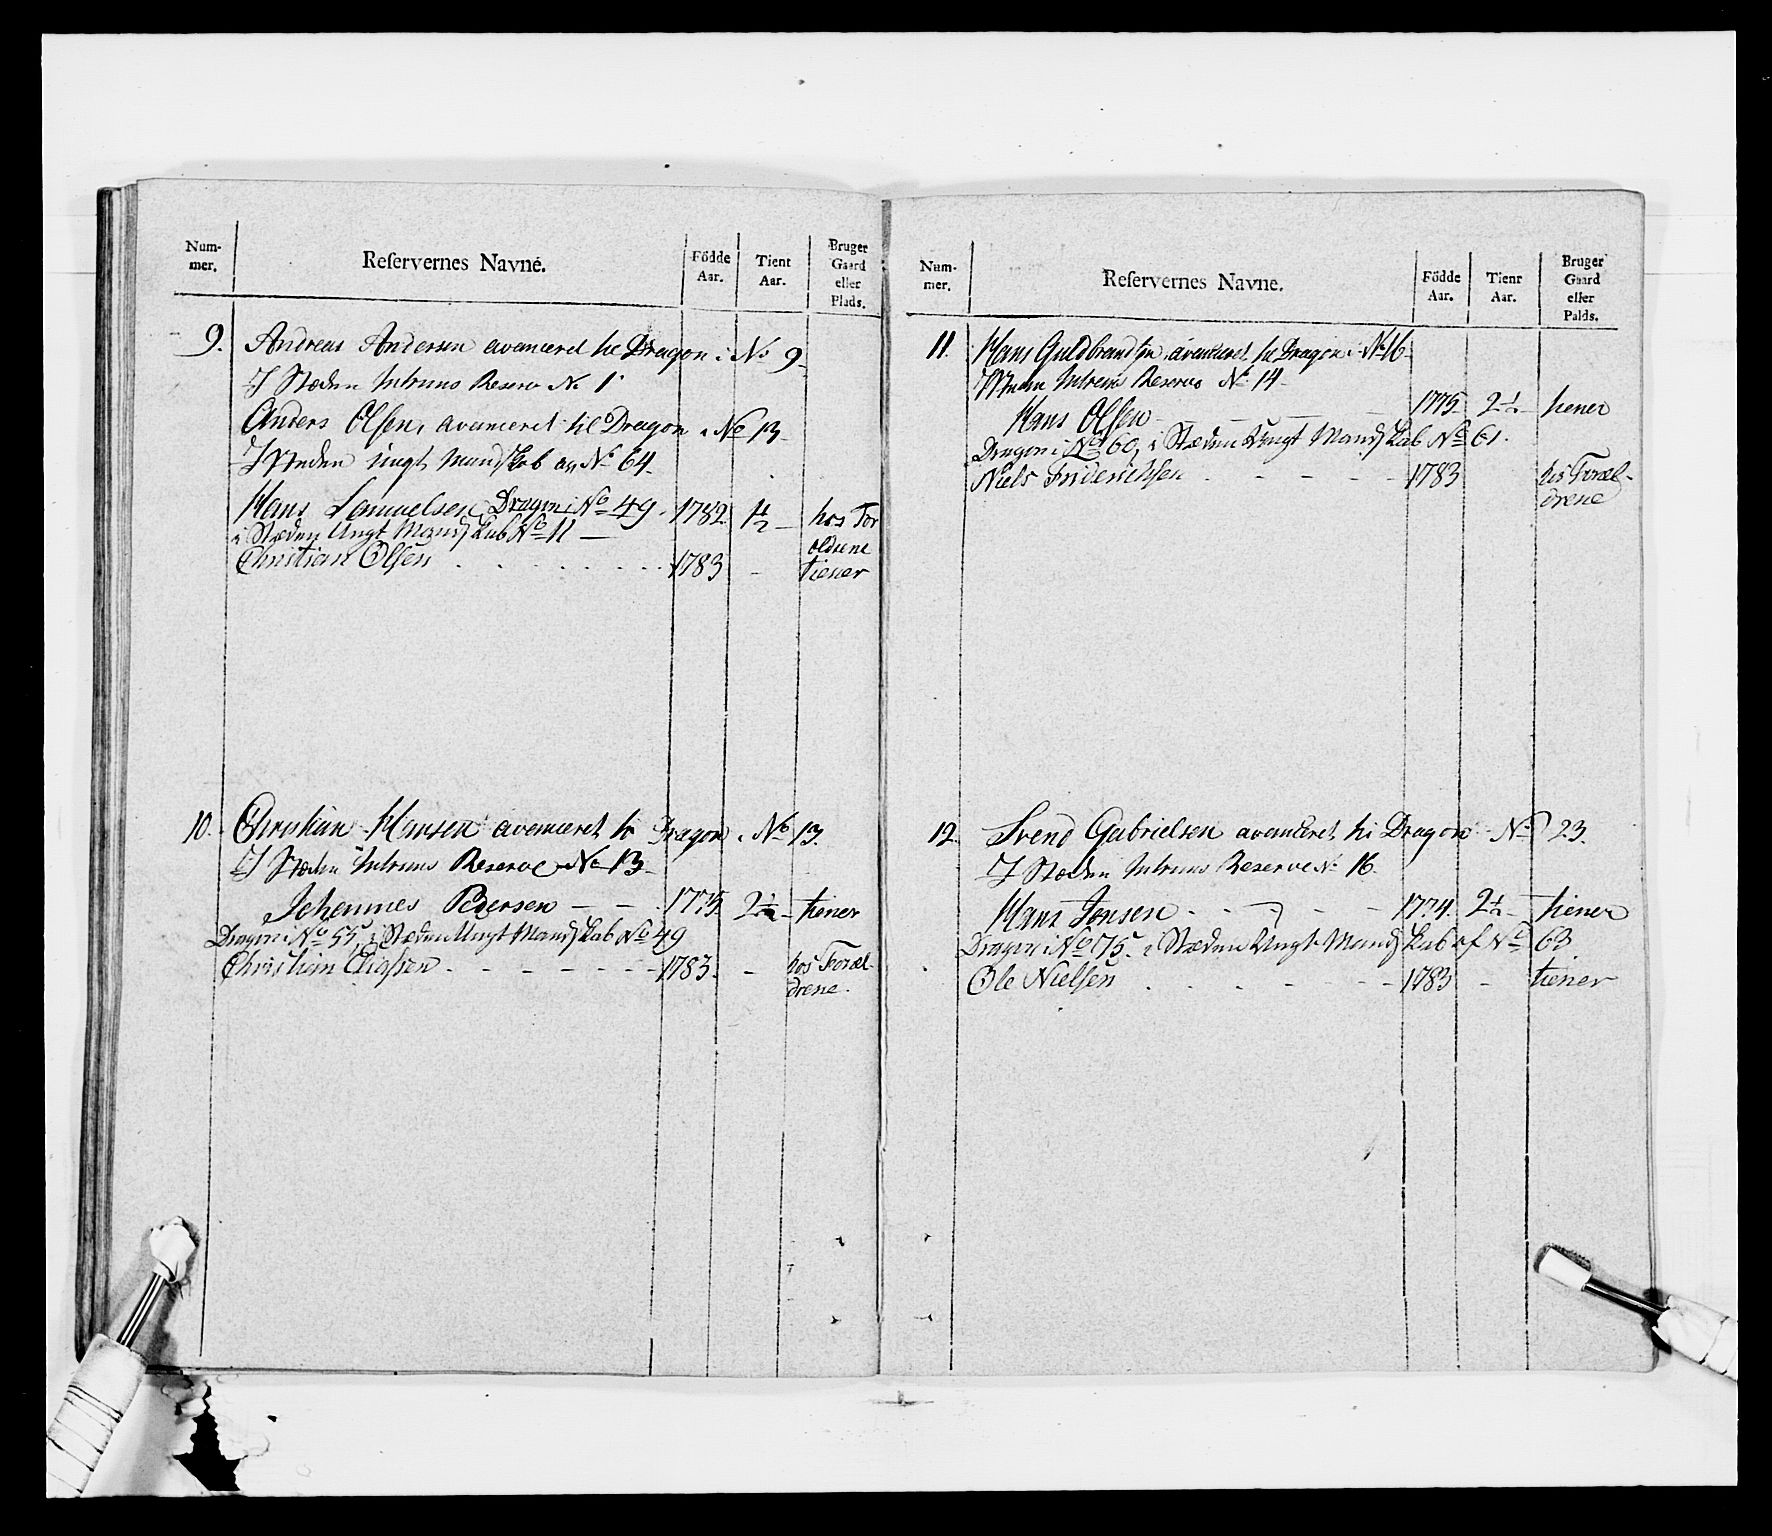 Num-
mer.
Reservernes Navne.
Födde
Aar.
Tient
Aar.
Bruger
Gaard
eller
Plads.
9. Andreas Andersen avanceret til Dragon i No 9
I Stæden Intruns Reserv No 1
Anders Olsen, avanceret til Dragon i No 13
I Stæden Ungt Mandskab av No 64
Hans Samuelsen Dragon i No 49. 1782 1½ hos For
i Stæden Ungt Mandskab No 11 — ældrene
Christian Olsen 1783 - tiener
10. Christian Hansen avanceret til Dragon i No 13.
I Stæden Intruns Reserve No 13
Johannes Pedersen — — 1775 2½ tiener
Dragon i No 55, i Stæden Ungt Mandskab No 49
Christian Eliassen 1783. - hos Foræl-
drene.
Num-
mer.
Reservernes Navne.
Födde
Aar.
Tienr
Aar.
Bruger
Gaard
eller
Palds.
11. Hans Guldbrandsen avanceret til Dragon i No 16
I Stæden Intruns Reserve No 14
Hans Olsen 1775 2½ tiener
Dragon i No 60, i Stæden Ungt Mandskab No 61.
Niels Friderichsen 1783 hos Foræl-
drene
12. Svend Gabrielsen avanceret til Dragon i No 23.
I Stæden Intruns Reserve No 16
Hans Jonsen 1774. 2½ tiener
Dragon i No 75. i Stæden Ungt Mandskab af No 63
Ole Nielsen 1783 - tiener